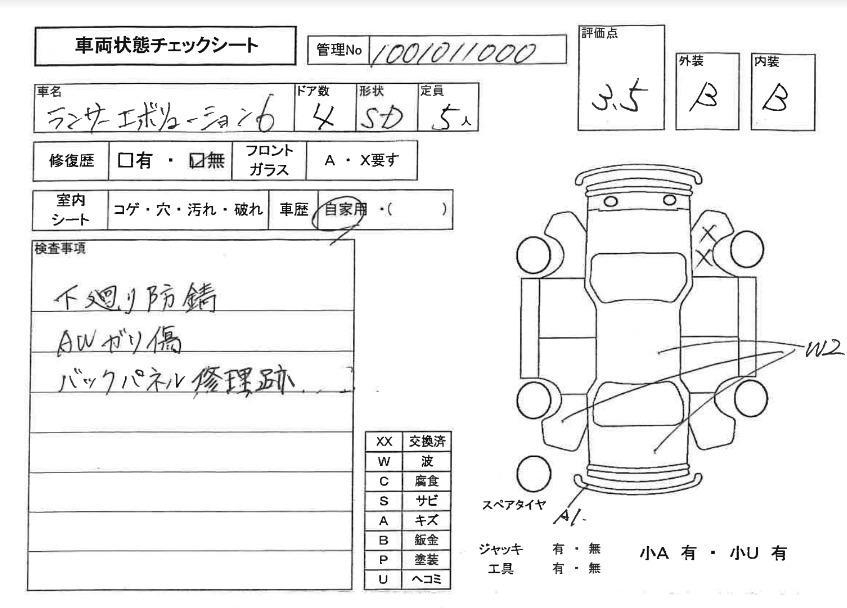 車両状態チェックシート
管理No 1001011000
評価点 3.5
外装 B
内装 B
車名 ランサーエボリューション6
ドア数 4
形状 SD
定員 5人
修復歴 □有 ・ ☑無
フロントガラス A ・ X要す
室内シート コゲ・穴・汚れ・破れ
車歴 自家用 ・( )
検査事項
下廻り防錆
AWガリ傷
バックパネル修理跡
X
X
W2
A1.
スペアタイヤ
XX 交換済
W 波
C 腐食
S サビ
A キズ
B 鈑金
P 塗装
U ヘコミ
ジャッキ 有 ・ 無
工具 有 ・ 無
小A 有 ・ 小U 有